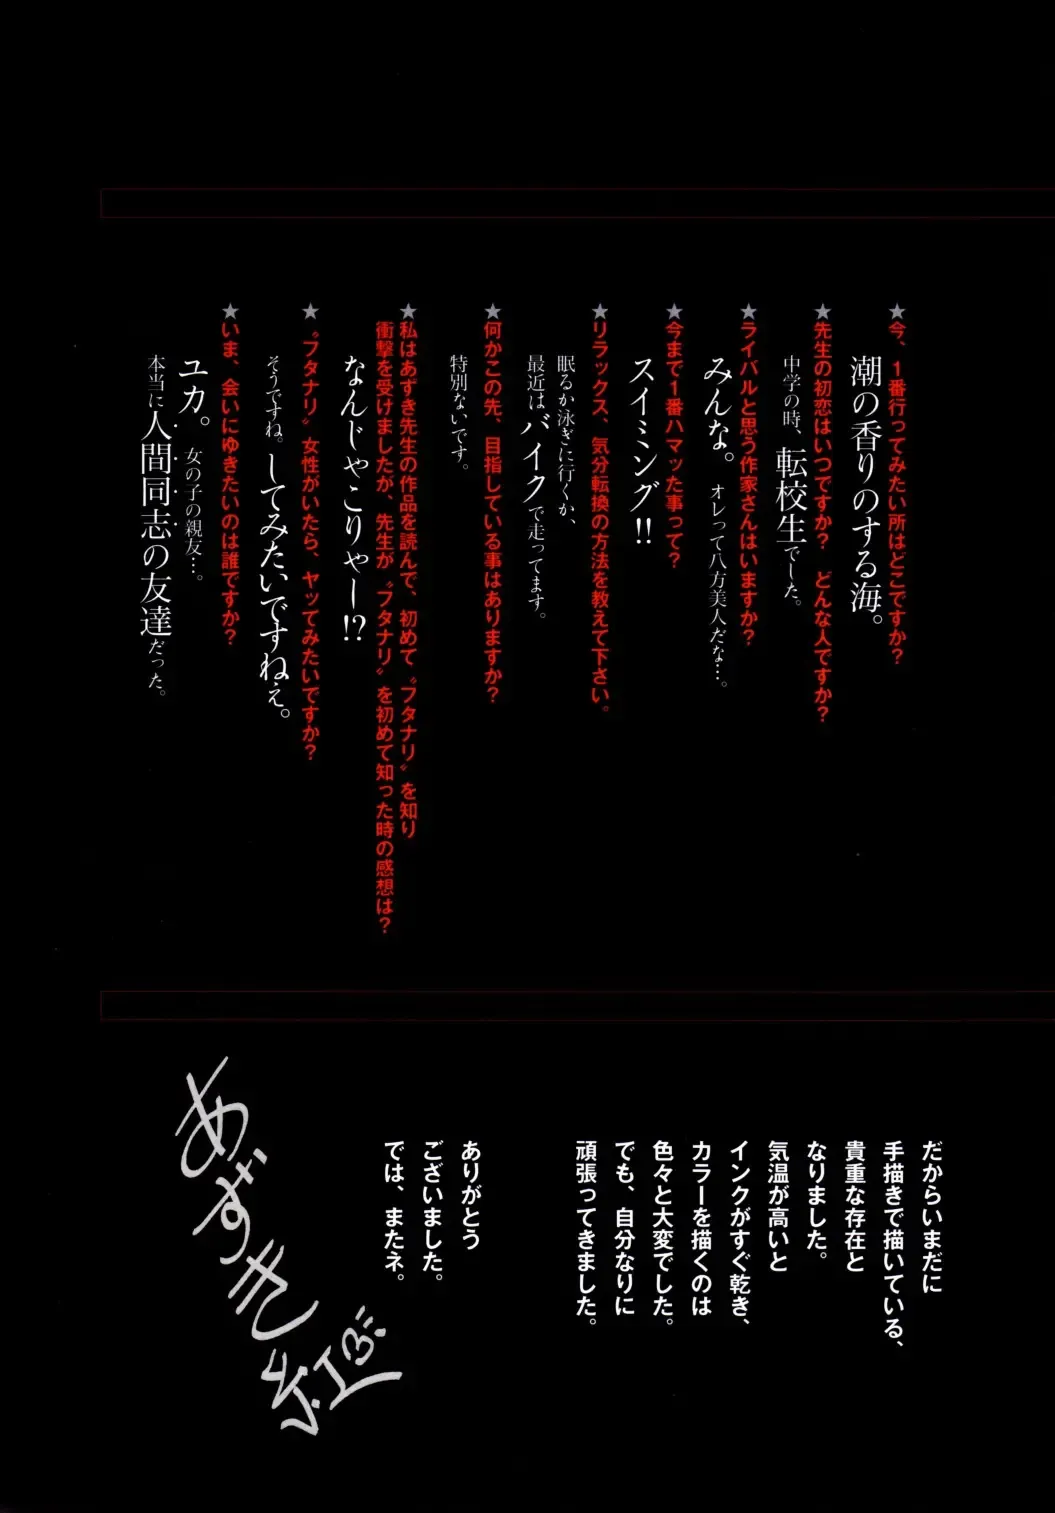 ★今、1番行ってみたい所はどこですか?
潮の香りのする海。
★先生の初恋はいつですか? どんな人ですか?
中学の時、転校生でした。
★ライバルと思う作家さんはいますか?
みんな。 オレって八方美人だな…。
★今まで1番ハマッた事って?
スイミング!!
★リラックス、気分転換の方法を教えて下さい。
眠るか泳ぎに行くか、
最近はバイクで走ってます。
★何かこの先、目指している事はありますか?
特別ないです。
★私はあずき先生の作品を読んで、初めて〝フタナリ〟を知り
衝撃を受けましたが、先生が〝フタナリ〟を初めて知った時の感想は?
なんじゃこりゃー!?
★〝フタナリ〟女性がいたら、ヤッてみたいですか?
そうですね。してみたいですねぇ。
★いま、会いにゆきたいのは誰ですか?
ユカ。 女の子の親友…。
本当に人間同志の友達だった。
だからいまだに
手描きで描いている、
貴重な存在と
なりました。
気温が高いと
インクがすぐ乾き、
カラーを描くのは
色々と大変でした。
でも、自分なりに
頑張ってきました。
ありがとう
ございました。
では、またネ。
あずき紅